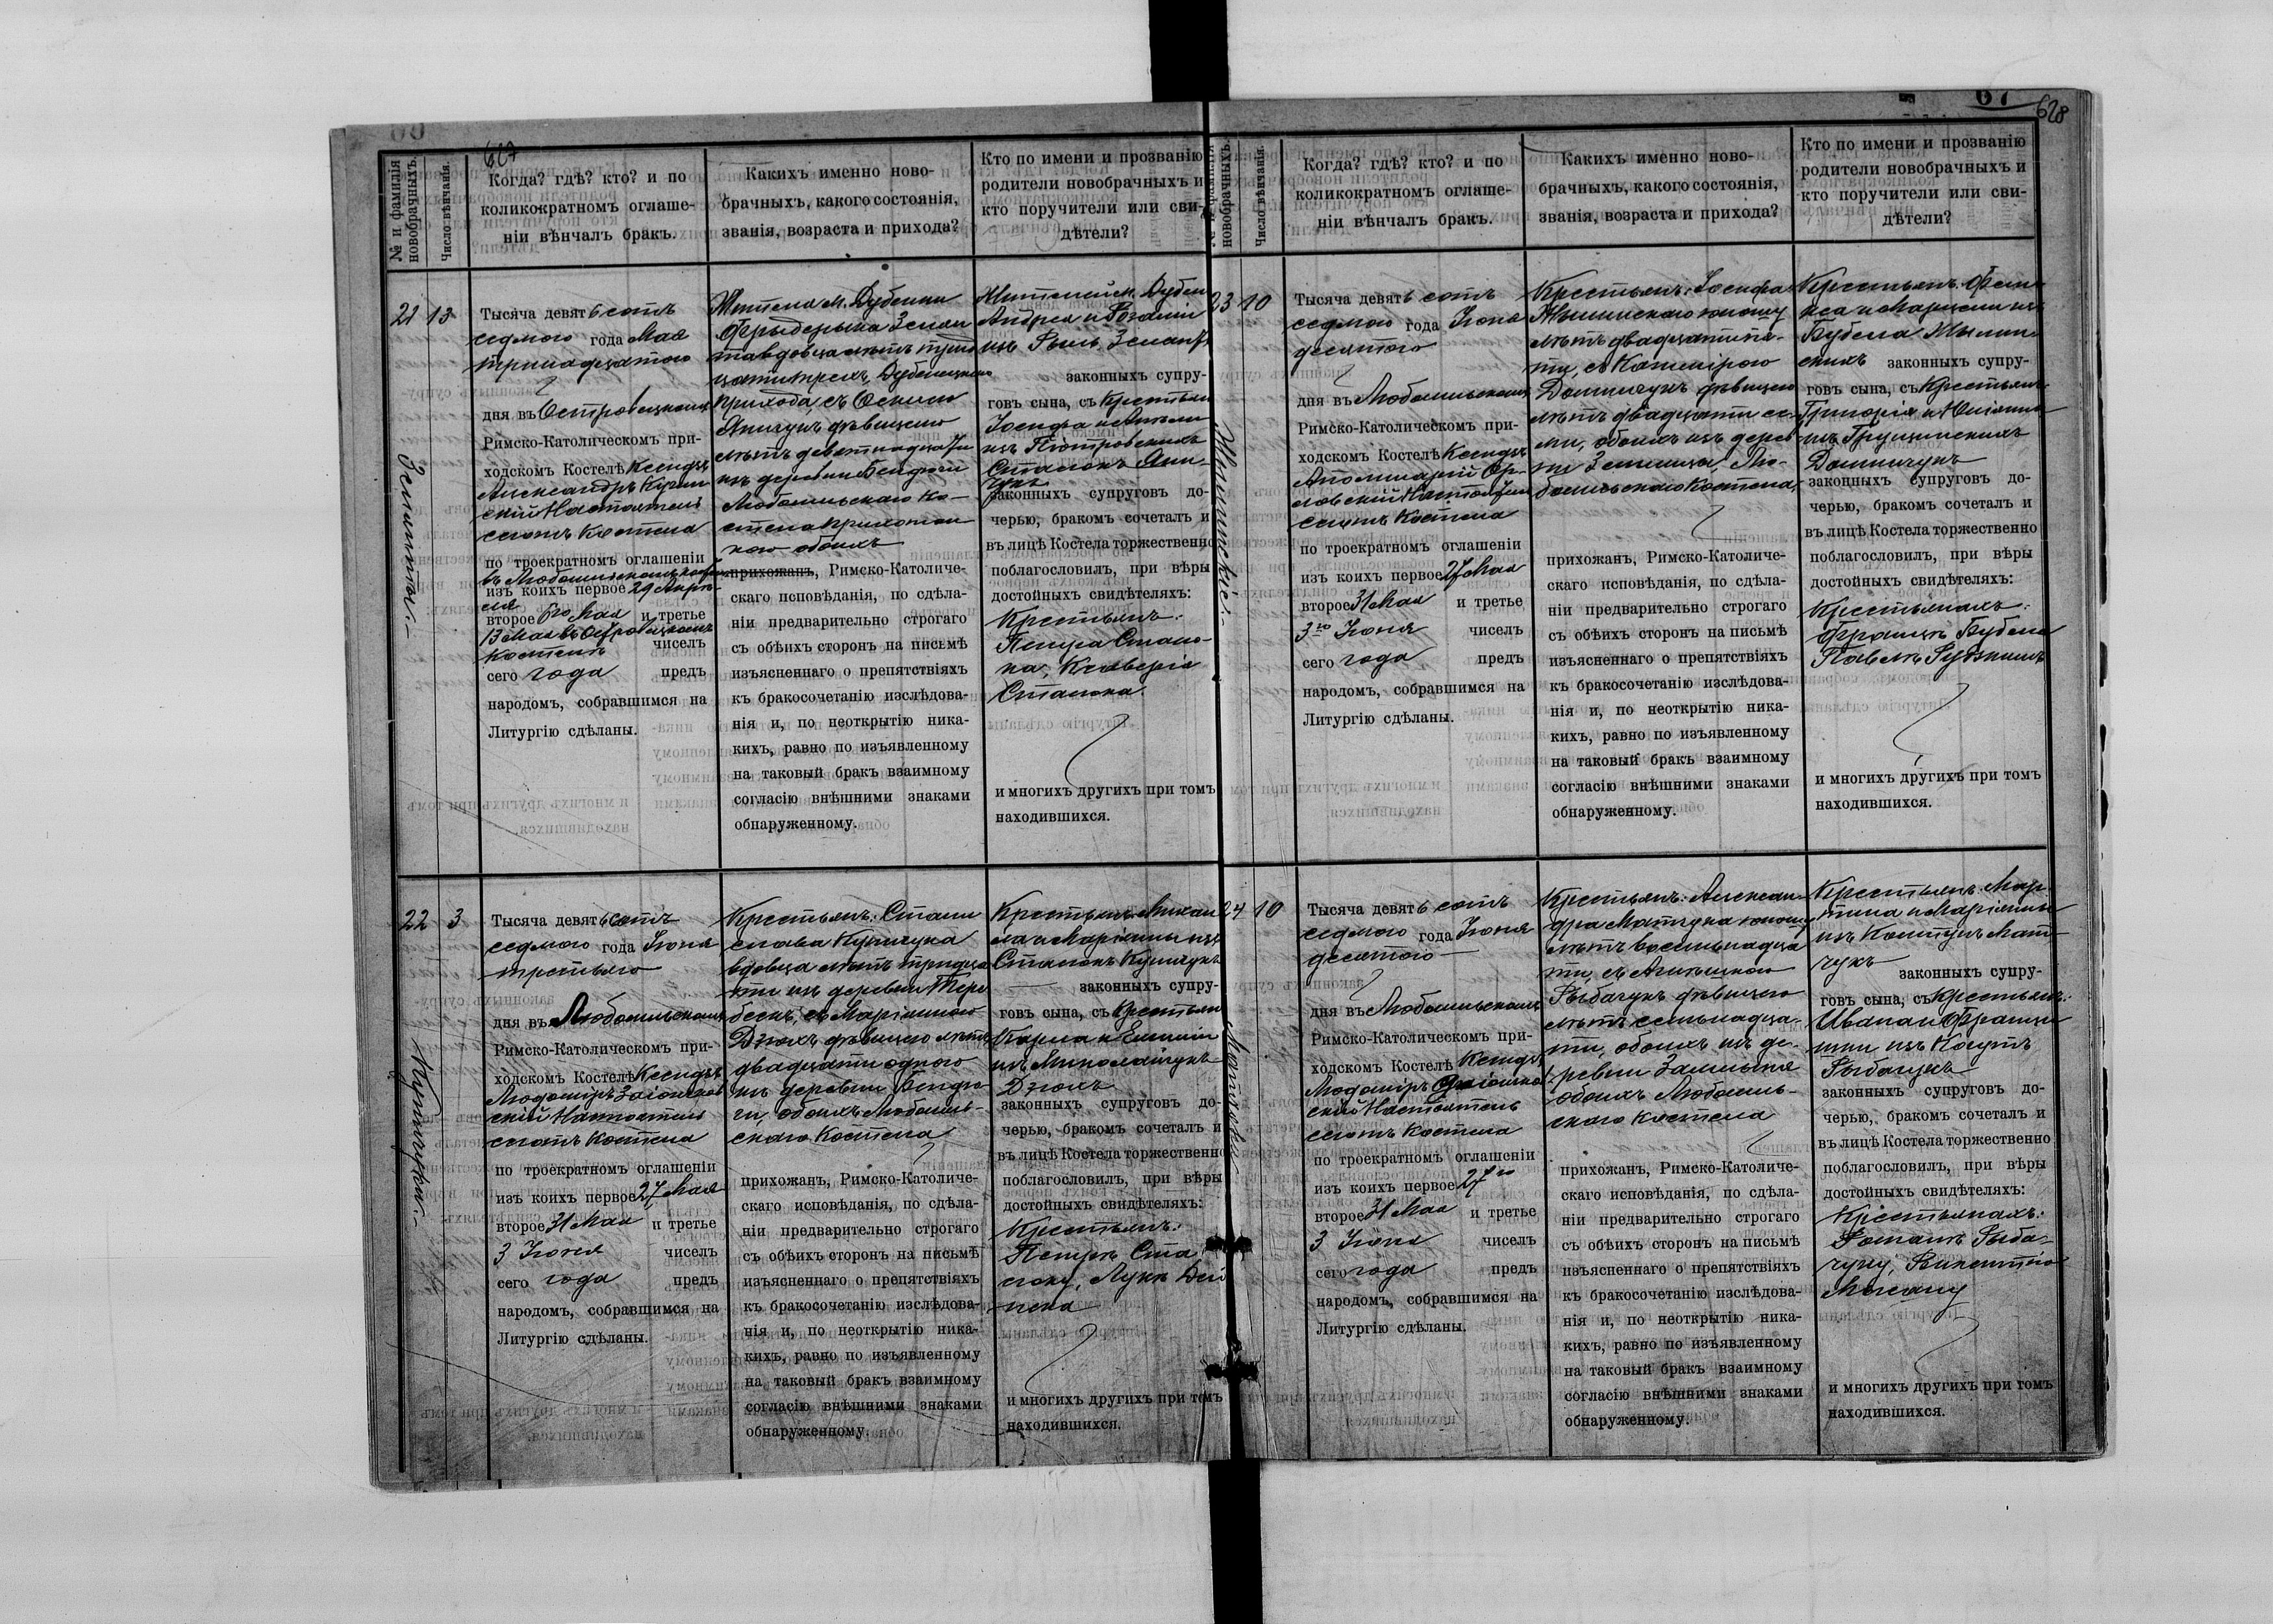 67
628
627
№ и фамилія новобрачныхъ.
Число вѣнчанія.
Когда? гдѣ? кто? и по
коликократномъ оглаше-
ніи вѣнчалъ бракъ.
Какихъ именно ново-
брачныхъ, какого состоянія,
званія, возраста и прихода?
Кто по имени и прозванію
родители новобрачныхъ и
кто поручители или сви-
дѣтели?
21 13
Тысяча девятьсотъ
седмого года Мая
тринадцатого
дня въ Островецкомъ
Римско-Католическомъ при-
ходскомъ Костелѣ Ксендзъ
Александръ
скій Настоятель
сегожъ Костела
по троекратномъ оглашеніи
въ Любомльскомъ
изъ коихъ первое 29 Апрѣ-
ля
второе 6го Мая и третье
13 Мая въ Островецкомъ
Костелѣ чиселъ
сего года предъ
народомъ, собравшимся на
Литургію сдѣланы.
Жителя м. Дубенки
Фрыдерыка Земан
та вдовца лѣтъ трид
цати трехъ, Дубенецкаго
прихода, съ
Янчукъ дѣвицею
лѣтъ девятнадцати
изъ деревни
Любомльскаго Ко-
стела прихожан
кою обоихъ
прихожанъ, Римско-Католиче-
скаго исповѣданія, по сдѣла-
ніи предварительно строгаго
съ обѣихъ сторонъ на письмѣ
изъясненнаго о препятствіяхъ
къ бракосочетанію изслѣдова-
нія и, по неоткрытію ника-
кихъ, равно по изъявленному
на таковый бракъ взаимному
согласію внѣшними знаками
обнаруженному.
Жителей м. Дубен
Андрея и Розаліи
изъ
законныхъ супру-
говъ сына, съ Крестьян
Іосифа и Анели
изъ Піотровскихъ
Янчукъ
законныхъ супруговъ до-
черью, бракомъ сочеталъ и
въ лицѣ Костела торжественно
поблагословилъ, при вѣры
достойныхъ свидѣтеляхъ:
Крестьянъ:
Петра Стасю-
ка, Ксаверія
Стасюка
и многихъ другихъ при томъ
находившихся.
22 3
Тысяча девятьсотъ
седмого года Іюня
третьяго
дня въ Любомльскомъ
Римско-Католическомъ при-
ходскомъ Костелѣ Ксендзъ
Людомиръ
скій Настоятель
сегожъ Костела
по троекратномъ оглашеніи
изъ коихъ первое 27 Мая
второе 31 Мая и третье
3 Іюня чиселъ
сего года предъ
народомъ, собравшимся на
Литургію сдѣланы.
Крестьянъ: Стани
слава
вдовца лѣтъ тридца
ти изъ деревни Тере
бейкъ, съ Маріанною
Дзюхъ дѣвицею лѣтъ
двадцати одного
изъ деревни
обоихъ Любомль-
скаго Костела
прихожанъ, Римско-Католиче-
скаго исповѣданія, по сдѣла-
ніи предварительно строгаго
съ обѣихъ сторонъ на письмѣ
изъясненнаго о препятствіяхъ
къ бракосочетанію изслѣдова-
нія и, по неоткрытію ника-
кихъ, равно по изъявленному
на таковый бракъ взаимному
согласію внѣшними знаками
обнаруженному.
Крестьянъ Михаи
ла и Маріанны изъ
Стасюкъ
законныхъ супру-
говъ сына, съ Крестьян
Карла и Емиліи
изъ Миколайчукъ
Дзюхъ
законныхъ супруговъ до-
черью, бракомъ сочеталъ и
въ лицѣ Костела торжественно
поблагословилъ, при вѣры
достойныхъ свидѣтеляхъ:
Крестьянъ:
Петръ Ста
сюку, Лука
и многихъ другихъ при томъ
находившихся.
№ и фамилія новобрачныхъ.
Число вѣнчанія.
Когда? гдѣ? кто? и по
коликократномъ оглаше-
ніи вѣнчалъ бракъ.
Какихъ именно ново-
брачныхъ, какого состоянія,
званія, возраста и прихода?
Кто по имени и прозванію
родители новобрачныхъ и
кто поручители или сви-
дѣтели?
23 10
Тысяча девятьсотъ
седмого года Іюня
десятого
дня въ Любомльскомъ
Римско-Католическомъ при-
ходскомъ Костелѣ Ксендзъ
Аполинарій Ор-
ловскій Настоятель
сегожъ Костела
по троекратномъ оглашеніи
изъ коихъ первое 27 Мая
второе 31 Мая и третье
3го Іюня чиселъ
сего года предъ
народомъ, собравшимся на
Литургію сдѣланы.
Крестьянъ: Іосифа
юношу
лѣтъ двадцати пя-
ти, съ Казимірою
Доминчукъ дѣвицею
лѣтъ двадцати се-
ми, обоихъ изъ дерев
ни Землица, Лю-
бомльскаго Костела,
прихожанъ, Римско-Католиче-
скаго исповѣданія, по сдѣла-
ніи предварительно строгаго
съ обѣихъ сторонъ на письмѣ
изъясненнаго о препятствіяхъ
къ бракосочетанію изслѣдова-
нія и, по неоткрытію ника-
кихъ, равно по изъявленному
на таковый бракъ взаимному
согласію внѣшними знаками
обнаруженному.
Крестьянъ: Фели
кса и Марцели изъ
скихъ законныхъ супру-
говъ сына, съ Крестьянъ
Григорія и Юліанны
изъ Грущинскихъ
Доминчукъ
законныхъ супруговъ до-
черью, бракомъ сочеталъ и
въ лицѣ Костела торжественно
поблагословилъ, при вѣры
достойныхъ свидѣтеляхъ:
Крестьянахъ:
Францъ
Павелъ
и многихъ другихъ при томъ
находившихся.
24 10
Тысяча девятьсотъ
седмого года Іюня
десятого
дня въ Любомльскомъ
Римско-Католическомъ при-
ходскомъ Костелѣ Ксендзъ
Людомиръ
скій Настоятель
сегожъ Костела
по троекратномъ оглашеніи
изъ коихъ первое 27го
второе 31 Мая и третье
3 Іюня чиселъ
сего года предъ
народомъ, собравшимся на
Литургію сдѣланы.
Крестьянъ: Алексан-
дра Матчука юношу
лѣтъ восемнадца
ти, съ
Рыбачукъ дѣвицею
лѣтъ семнадца-
ти, обоихъ изъ де-
ревни
обоихъ Любомль-
скаго Костела
прихожанъ, Римско-Католиче-
скаго исповѣданія, по сдѣла-
ніи предварительно строгаго
съ обѣихъ сторонъ на письмѣ
изъясненнаго о препятствіяхъ
къ бракосочетанію изслѣдова-
нія и, по неоткрытію ника-
кихъ, равно по изъявленному
на таковый бракъ взаимному
согласію внѣшними знаками
обнаруженному.
Крестьянъ: Мар
тина и Маріанны
изъ Мат
чукъ
законныхъ супру-
говъ сына, съ Крестьянъ:
Ивана и Францы
шки изъ
Рыбачукъ
законныхъ супруговъ до-
черью, бракомъ сочеталъ и
въ лицѣ Костела торжественно
поблагословилъ, при вѣры
достойныхъ свидѣтеляхъ:
Крестьянахъ:
Романъ Рыба-
чуку, Викентію
и многихъ другихъ при томъ
находившихся.